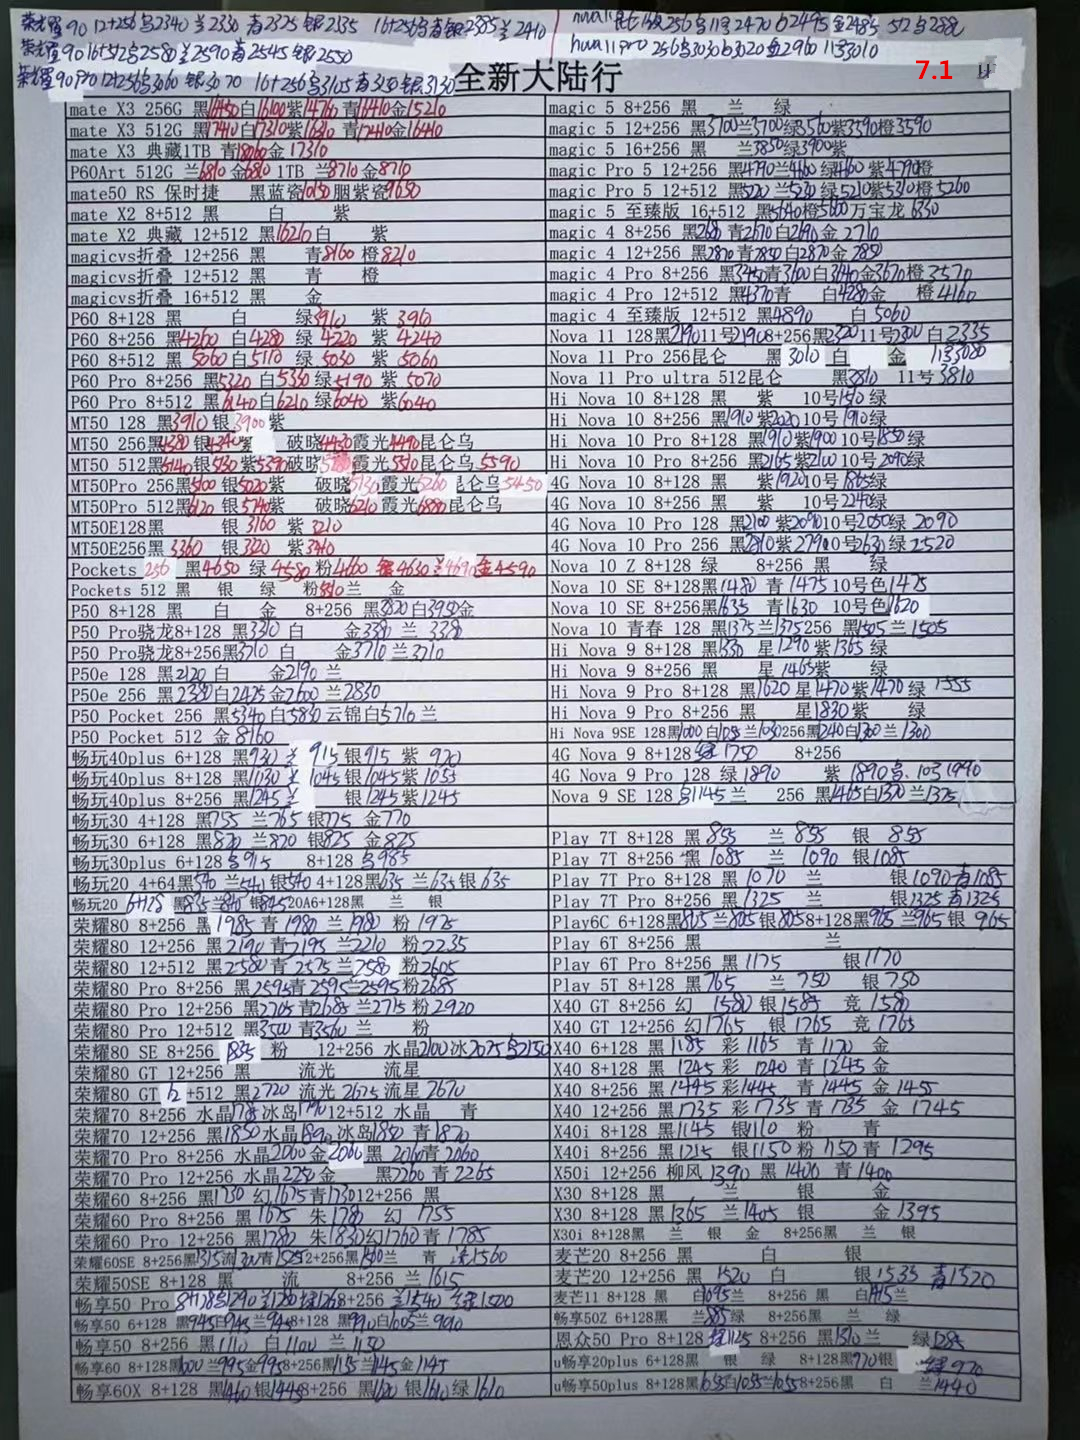 荣耀90 12+256乌2340 兰2330 青2325 银2335 16+256乌青银2385兰2410
荣耀90 16+512乌2580兰2590青2545 银2550
荣耀90pro 12+256乌3060 银3070 16+256乌3105青3130银3130
nova11 昆仑 256乌11号2470 白2495 金2485 512乌2880
nova11pro 256乌3030白3020金2960 11号3010
全新大陆行
7.1
mate X3 256G 黑16450白16100紫14760青16410金15210
mate X3 512G 黑17410白17310紫16310青17410金16410
mate X3 典藏1TB 青18060金17310
P60Art 512G 兰6810金6810 1TB 兰8710金8710
mate50 RS 保时捷 黑蓝瓷1050胭紫瓷9650
mate X2 8+512 黑 白 紫
mate X2 典藏 12+512 黑16210白 紫
magicvs折叠 12+256 黑 青8160橙8210
magicvs折叠 12+512 黑 青 橙
magicvs折叠 16+512 黑 金
P60 8+128 黑 白 绿3910 紫3960
P60 8+256 黑4260 白4280 绿4220 紫4240
P60 8+512 黑5060白5110 绿5030 紫5060
P60 Pro 8+256 黑5320白5330绿5190紫5070
P60 Pro 8+512 黑6140白6210绿6040紫6040
MT50 128 黑3910银3900紫
MT50 256黑4380银4340紫 破晓4430霞光4490昆仑乌
MT50 512黑5140银5130紫5390破晓 霞光5510昆仑乌5590
MT50Pro 256黑5100银5020紫 破晓5130霞光5260昆仑乌5450
MT50Pro 512黑6120银5740紫 破晓6210霞光6880昆仑乌
MT50E128黑 银3160 紫3210
MT50E256黑3360 银3320 紫3410
Pockets 256 黑4650 绿4580粉4660银4630兰4690金4590
Pockets 512 黑 银 绿 粉 兰 金
P50 8+128 黑 白 金 8+256 黑3820白3950金
P50 Pro骁龙8+128 黑3310白 金3380兰3380
P50 Pro骁龙8+256黑3710白 金3710兰3710
P50e 128 黑2120白 金2190兰
P50e 256 黑2380白2425金2600兰2830
P50 Pocket 256 黑5340白5830云锦白5710兰
P50 Pocket 512 金8160
畅玩40plus 6+128 黑930兰915银915紫920
畅玩40plus 8+128 黑1030兰1045银1045紫1055
畅玩40plus 8+256 黑1245兰 银1245紫1245
畅玩30 4+128 黑755 兰765银775 金770
畅玩30 6+128 黑820兰820银825 金825
畅玩30plus 6+128乌915 8+128乌985
畅玩20 4+64黑540兰540银540 4+128黑635兰635银635
畅玩20 6+128黑835兰840银845 20A6+128黑 兰 银
荣耀80 8+256 黑1985青1980兰1980粉1975
荣耀80 12+256 黑2190青2195兰2210粉2235
荣耀80 12+512 黑2580青2575兰2580粉2605
荣耀80 Pro 8+256 黑2595青2595兰2595粉2685
荣耀80 Pro 12+256 黑2705青2685兰2715粉2920
荣耀80 Pro 12+512 黑3500青3560兰 粉
荣耀80 SE 8+256 1835 粉 12+256 水晶2100冰2075乌2150
荣耀80 GT 12+256 黑 流光 流星
荣耀80 GT 12+512 黑2720流光2675流星2670
荣耀70 8+256 水晶1785冰岛1790 12+512 水晶 青
荣耀70 12+256 黑1850水晶1890冰岛1850青1870
荣耀70 Pro 8+256 水晶2060金2060黑2060青2060
荣耀70 Pro 12+256 水晶2250金 黑2260青2265
荣耀60 8+256 黑1730幻1675青1730 12+256 黑
荣耀60 Pro 8+256 黑1675 朱1780 幻1755
荣耀60 Pro 12+256 黑1780 朱1830幻1760青1785
荣耀60SE 8+256黑1315流1300青1525 12+256黑1500兰 青 流1560
荣耀50SE 8+128 黑 流 8+256 兰1615
畅享50 Pro 8+128乌1290兰1280绿1268 8+256 兰1540兰绿1500
畅享50 6+128 黑945白945兰945 8+128黑990白1005兰990
畅享50 8+256 黑1110 白1100 兰1130
畅享60 8+128黑1000兰995金995 8+256黑1135兰1145金1145
畅享60X 8+128 黑1460银1445 8+256黑1620银1610绿1610
magic 5 8+256 黑 兰 绿
magic 5 12+256 黑3700兰3700绿3560紫3590橙3590
magic 5 16+256 黑 兰3850绿3900紫
magic Pro 5 12+256 黑4790兰4460绿4460紫4790橙
magic Pro 5 12+512 黑5220兰5230绿5210紫5310橙5260
magic 5 至臻版 16+512 黑5640橙5600万宝龙6350
magic 4 8+256 黑2680青2670白2690金2710
magic 4 12+256 黑2870青2850白2870金2850
magic 4 Pro 8+256 黑3450青3600白3640金3670橙3570
magic 4 Pro 12+512 黑4370青 白4280金 橙4160
magic 4 至臻版 12+512 黑4890 白5060
Nova 11 128黑2190 11号2190 8+256黑2320 11号2300白2335
Nova 11 Pro 256昆仑 黑3010白 金 11号3020
Nova 11 Pro ultra 512昆仑 黑3810 11号3810
Hi Nova 10 8+128 黑 紫 10号 绿
Hi Nova 10 8+256 黑1910紫2020 10号1910绿
Hi Nova 10 Pro 8+128 黑1910紫1900 10号1850绿
Hi Nova 10 Pro 8+256 黑2165紫2100 10号2090绿
4G Nova 10 8+128 黑 紫1920 10号1865绿
4G Nova 10 8+256 黑 紫 10号2240绿
4G Nova 10 Pro 128 黑2100紫2090 10号2050绿2090
4G Nova 10 Pro 256 黑2810紫2790 10号2630绿2520
Nova 10 Z 8+128 绿 8+256 黑 绿
Nova 10 SE 8+128黑1480青1475 10号色1475
Nova 10 SE 8+256黑1635青1630 10号色1620
Nova 10 青春 128 黑1375兰1375 256 黑1505兰1505
Hi Nova 9 8+128 黑1330 星1290紫1365绿
Hi Nova 9 8+256 黑 星1465紫 绿
Hi Nova 9 Pro 8+128 黑1620星1470紫1470绿1555
Hi Nova 9 Pro 8+256 黑 星1830紫 绿
Hi Nova 9SE 128黑1000白1035兰1030 256黑1240白1300兰1300
4G Nova 9 8+128绿1750 8+256
4G Nova 9 Pro 128 绿1890 紫1890乌
Nova 9 SE 128乌1145兰 256 黑1465白1370兰1375
Play 7T 8+128 黑855 兰855 银855
Play 7T 8+256 黑1085 兰1090 银1085
Play 7T Pro 8+128 黑1070 兰 银1090青1085
Play 7T Pro 8+256 黑1325 兰 银1325青1325
Play6C 6+128黑805兰805银805 8+128黑965兰965银965
Play 6T 8+256 黑 兰
Play 6T Pro 8+256 黑1175 银1170
Play 5T 8+128 黑765 兰750 银750
X40 GT 8+256 幻1580银1585 竞1580
X40 GT 12+256 幻1765 银1765 竞1765
X40 6+128 黑1185 彩1165 青1170 金
X40 8+128 黑1245彩1240青1245金
X40 8+256 黑1445彩1445 青1445金1455
X40 12+256 黑1735彩1735青1735金1745
X40i 8+128 黑1145 银1110 粉 青
X40i 8+256 黑1215 银1150粉1150青1295
X50i 12+256 柳风1390黑1400 青1400
X30 8+128 黑 兰 银 金
X30 8+128 黑1365 兰1405 银 金1395
X30i 8+128黑 兰 银 金 8+256黑 兰 银
麦芒20 8+256 黑 白 银
麦芒20 12+256 黑1520 白 银1535 青1520
麦芒11 8+128 黑 白1095兰 8+256 黑 白1415兰
畅享50Z 6+128黑 兰885绿 8+256黑 兰 绿
恩众50 Pro 8+128 绿1125 8+256 黑1310兰 绿1285
u畅享20plus 6+128黑 银 绿 8+128黑970银 绿970
u畅享50plus 8+128黑1055白1055兰1055 8+256黑 白 兰1440